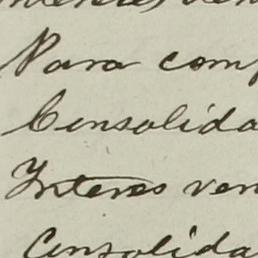 Para com
Consolida
Interes ven
Consolida